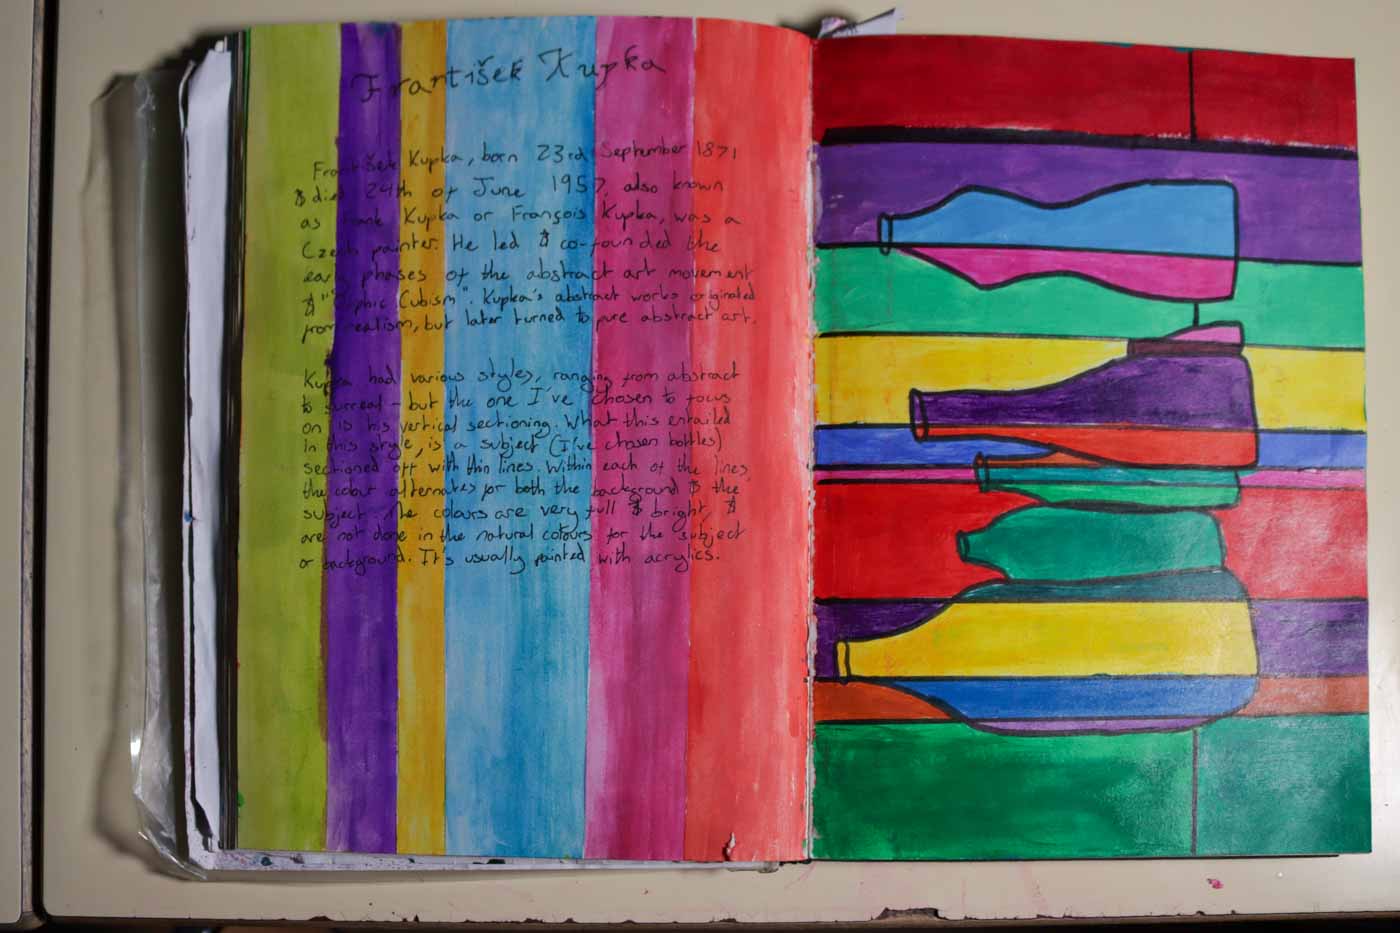 František Kupka
František Kupka, born 23rd September 1871
& died 24th of June 1957, also known
as Frank Kupka or François Kupka, was a
Czech painter. He led & co-founded the
early phases of the abstract art movement
& "Orphic Cubism". Kupka's abstract works originated
from realism, but later turned to pure abstract art.
Kupka had various styles, ranging from abstract
to surreal - but the one I've chosen to focus
on is his vertical sectioning. What this entailed
in this style, is a subject (I've chosen bottles)
sectioned off with thin lines. Within each of the lines,
the colour alternates for both the background & the
subject. The colours are very full & bright, &
are not done in the natural colours for the subject
or background. It's usually painted with acrylics.